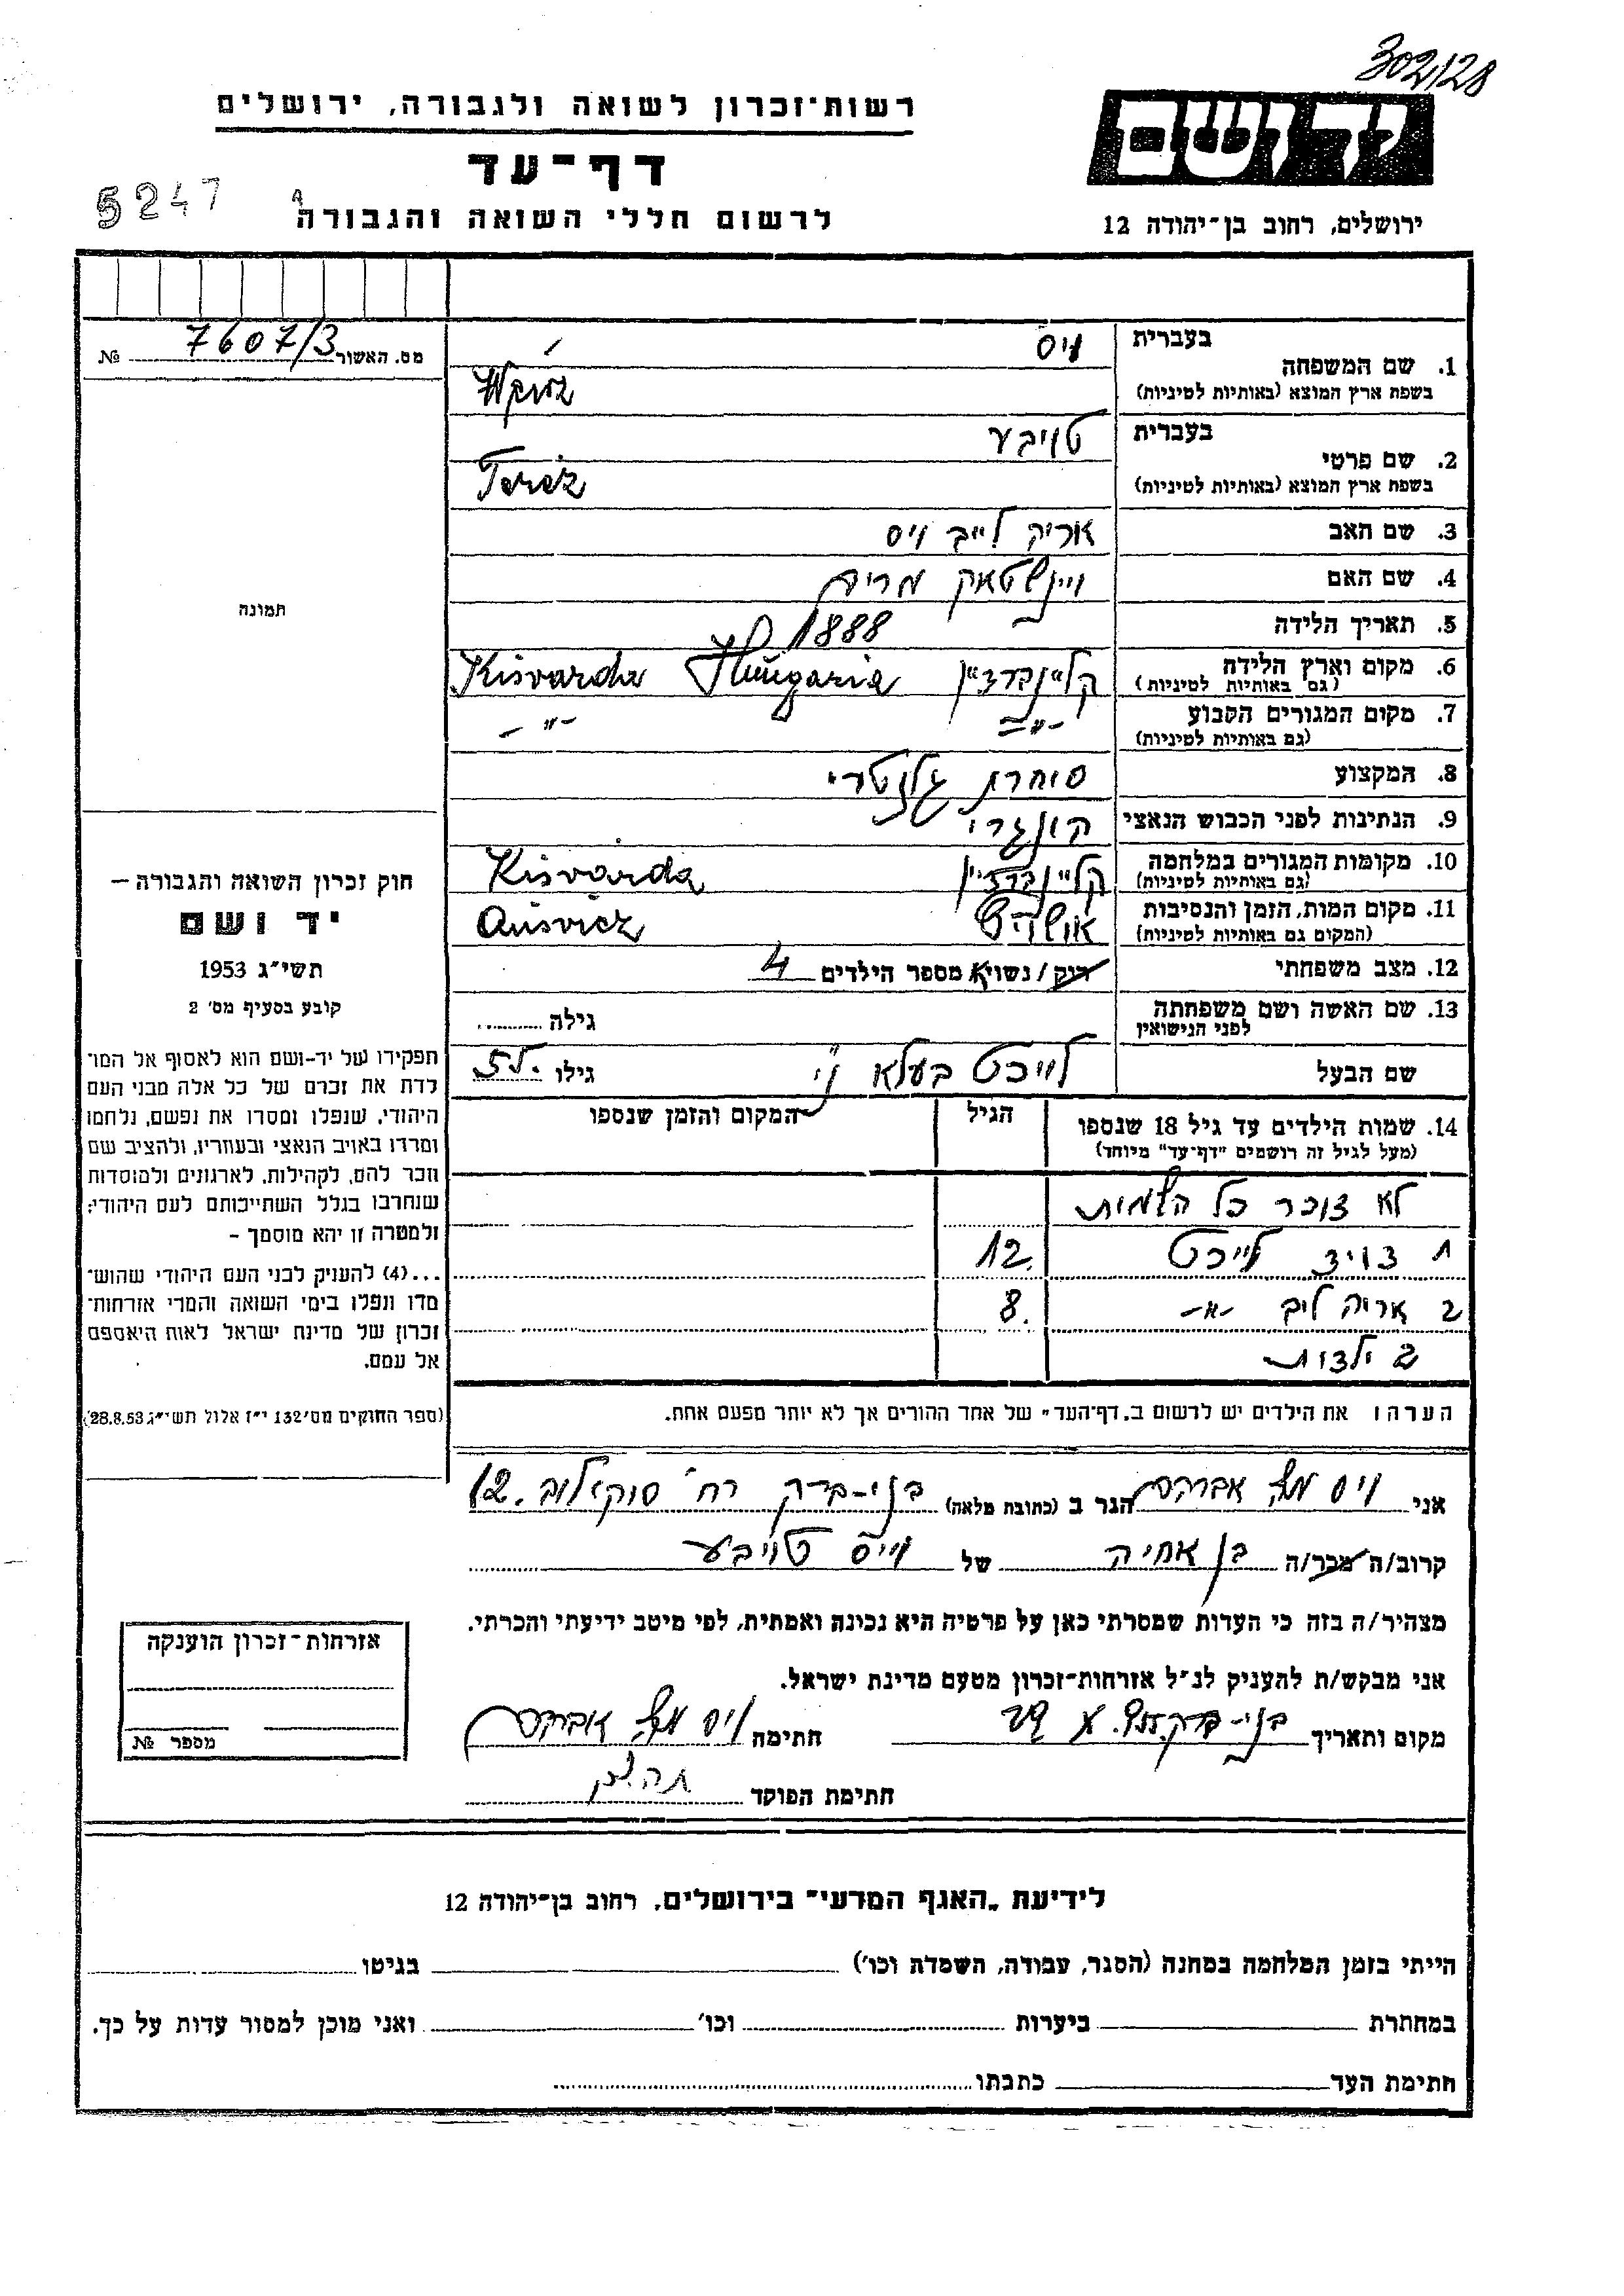 302/128
יד ושם
רשות-זכרון לשואה ולגבורה, ירושלים
דף-עד
לרשום חללי השואה והגבורה
5247
A
ירושלים, רחוב בן-יהודה 12
מס. האשור 7607/3 №
1. שם המשפחה
בעברית
וייס
בשפת ארץ המוצא (באותיות לטיניות)
2. שם פרטי
בעברית
טויבע
בשפת ארץ המוצא (באותיות לטיניות)
Teréz
3. שם האב
אריה לייב וייס
4. שם האם
ויינשטאק מרים
5. תאריך הלידה
1888
6. מקום וארץ הלידה
(גם באותיות לטיניות)
קליינברדיין Hungaria Kisvarda
7. מקום המגורים הקבוע
(גם באותיות לטיניות)
-"- -"-
8. המקצוע
סוחרת גלנטרי
9. הנתינות לפני הכבוש הנאצי
הונגרי
10. מקומות המגורים במלחמה
(גם באותיות לטיניות)
קליינברדיין Kisvárda
11. מקום המות, הזמן והנסיבות
(המקום גם באותיות לטיניות)
Ausvicz
12. מצב משפחתי
רוק / נשוי מספר הילדים 4
13. שם האשה ושם משפחתה
לפני הנישואין
גילה
שם הבעל
לייכט בעלא
גילו 55.
14. שמות הילדים עד גיל 18 שנספו
(מעל לגיל זה רושמים "דף-עד" מיוחד)
הגיל
המקום והזמן שנספו
לא זוכר כל השמות
1 דויד לייכט 12.
2 אריה ליב -"- 8.
2 ילדות
הערה: את הילדים יש לרשום ב„דף-העד" של אחד ההורים אך לא יותר מפעם אחת.
תמונה
חוק זכרון השואה והגבורה —
יד ושם
תשי"ג 1953
קובע בסעיף מס' 2
תפקידו של יד-ושם הוא לאסוף אל המו־
לדת את זכרם של כל אלה מבני העם
היהודי, שנפלו ומסרו את נפשם, נלחמו
ומרדו באויב הנאצי ובעוזריו, ולהציב שם
וזכר להם, לקהילות, לארגונים ולמוסדות
שנחרבו בגלל השתייכותם לעם היהודי;
ולמטרה זו יהא מוסמך —
...(4) להעניק לבני העם היהודי שהוש־
מדו ונפלו בימי השואה והמרי אזרחות־
זכרון של מדינת ישראל לאות היאספם
אל עמם.
(ספר החוקים מס' 132 י"ז אלול תשי"ג 28.8.53)
אני וייס אברהם הגר ב (כתובת מלאה) בני-ברק רח' סוקולוב 12.
קרוב/ה מכר/ה בן אחיה של וייס טויבע
מצהיר/ה בזה כי העדות שמסרתי כאן על פרטיה היא נכונה ואמתית, לפי מיטב ידיעתי והכרתי.
אני מבקש/ת להעניק לנ"ל אזרחות-זכרון מטעם מדינת ישראל.
מקום ותאריך בני-ברק
חתימה וייס אברהם
חתימת הפוקד
אזרחות-זכרון הוענקה
מספר №
לידיעת „האגף המדעי" בירושלים, רחוב בן-יהודה 12
הייתי בזמן המלחמה במחנה (הסגר, עבודה, השמדה וכו') בגיטו
במחתרת ביערות וכו' ואני מוכן למסור עדות על כך.
חתימת העד כתבתו